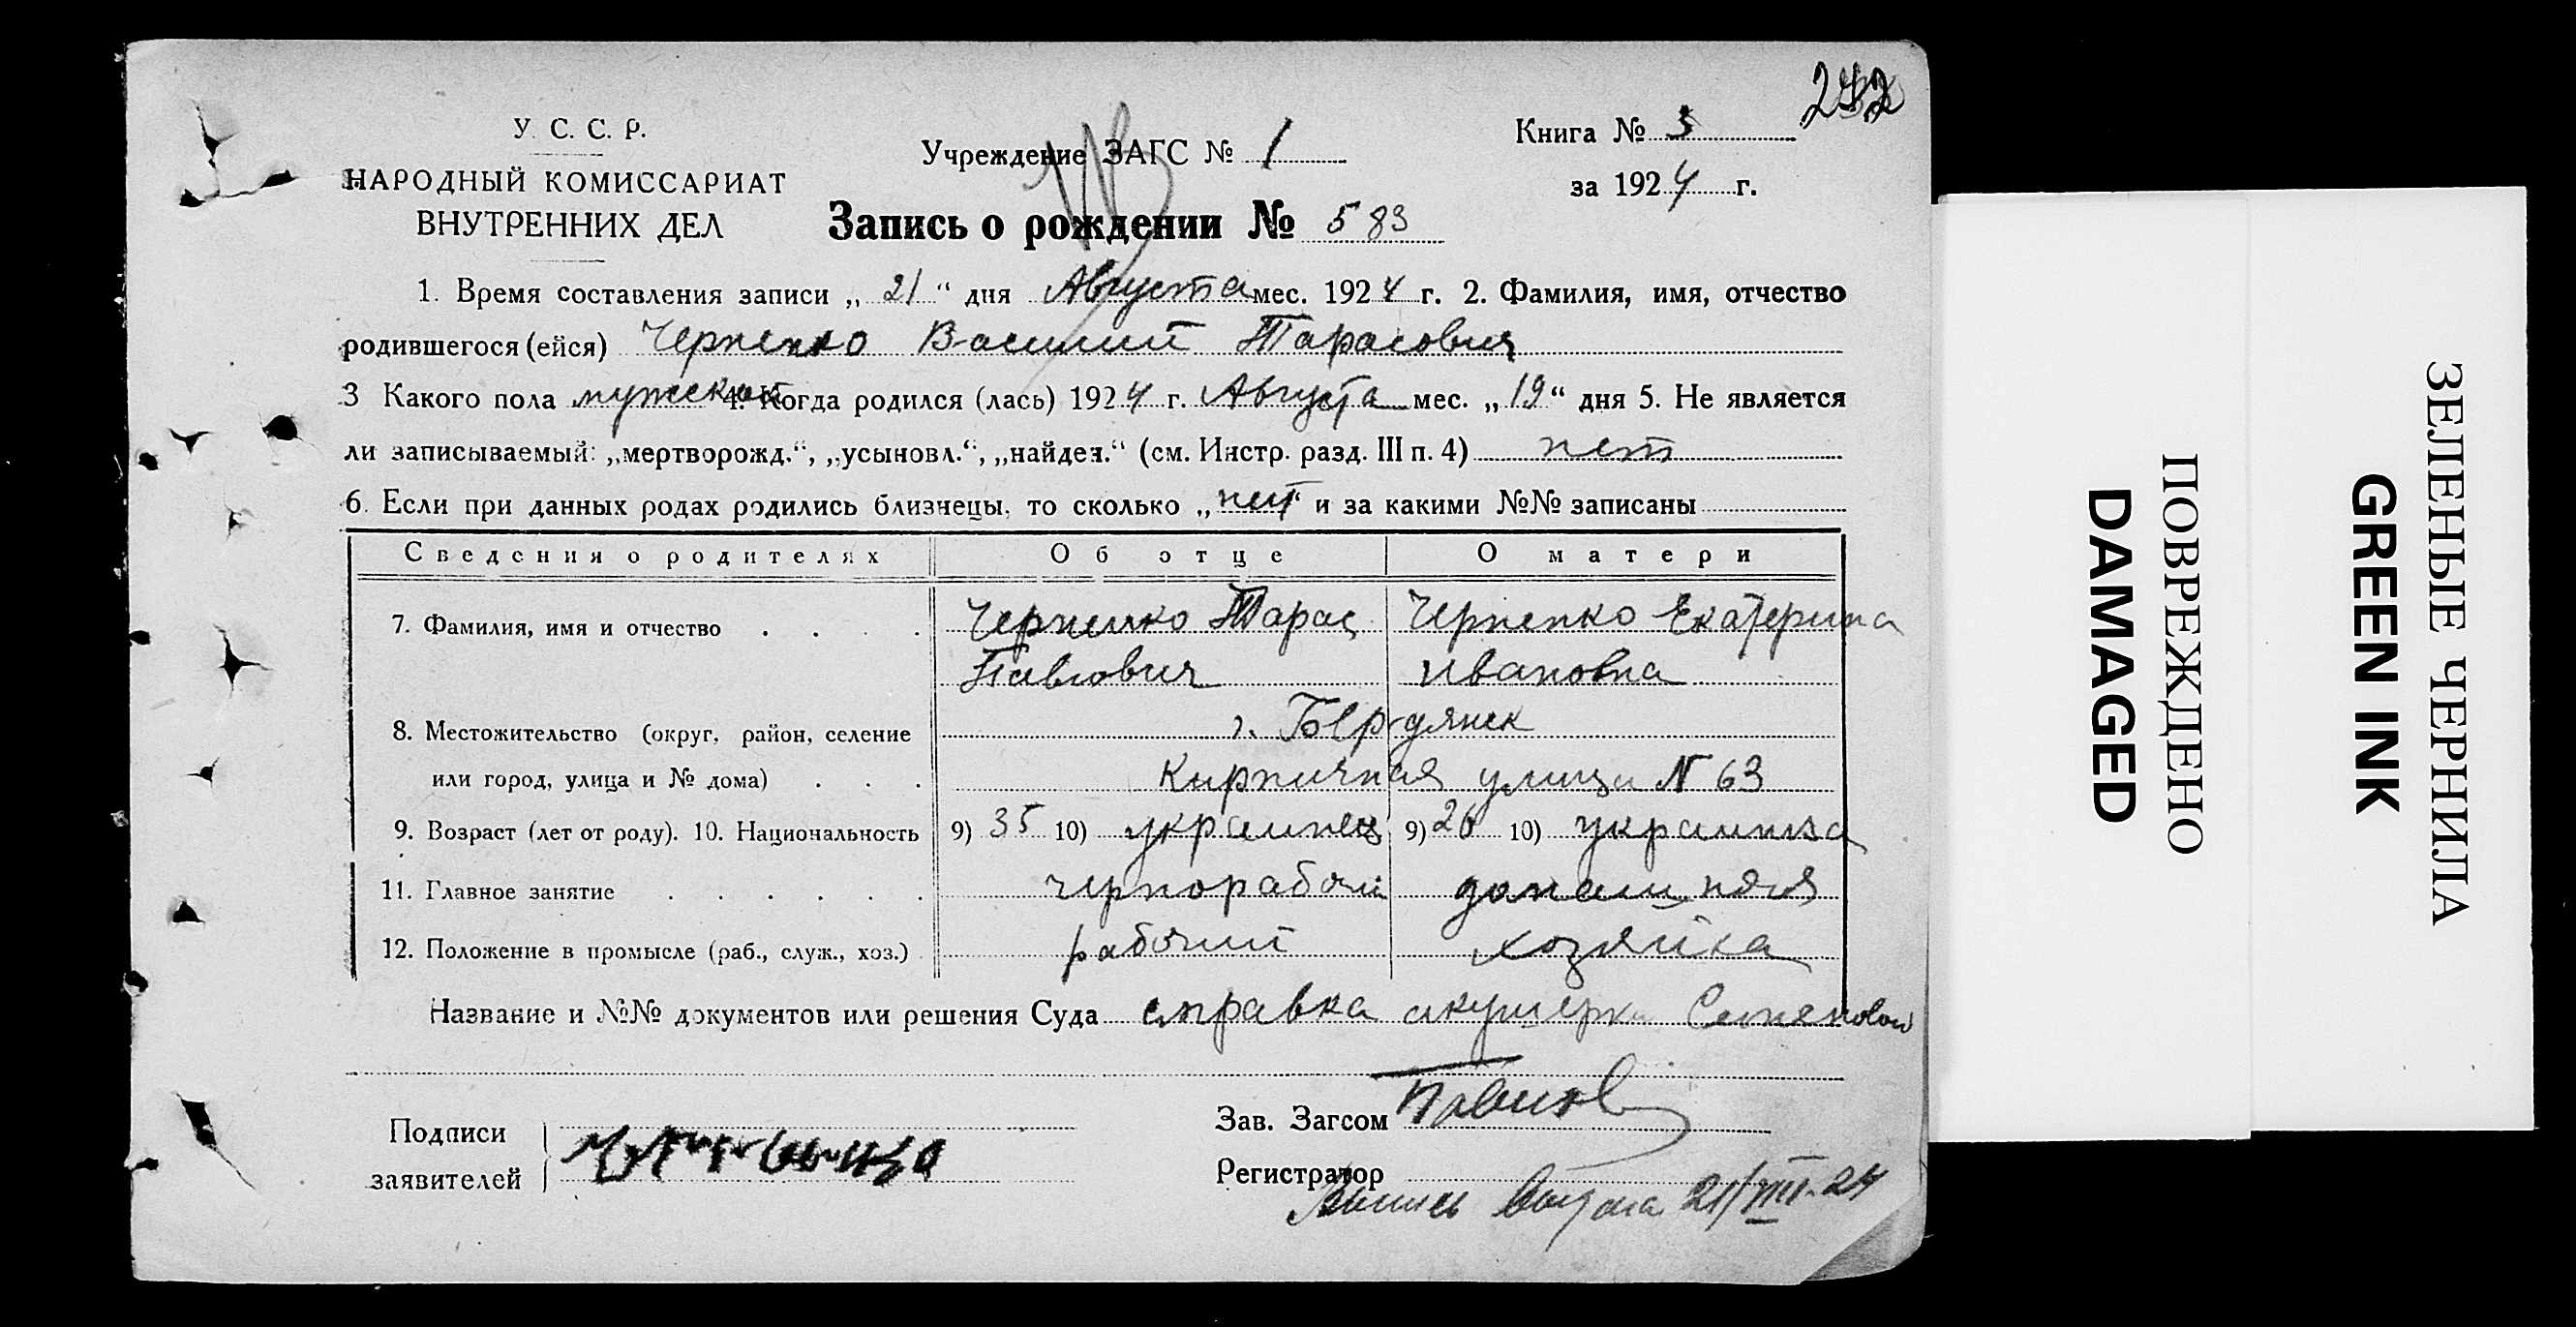 У. С. С. Р.
НАРОДНЫЙ КОМИССАРИАТ
ВНУТРЕННИХ ДЕЛ
Учреждение ЗАГС № 1
Книга № 3
за 1924 г.
Запись о рождении № 583
1. Время составления записи „ 21 “ дня Августа мес. 1924 г. 2. Фамилия, имя, отчество
родившегося (ейся) Черненко Василий Тарасович
3 Какого пола мужской 4. Когда родился (лась) 1924 г. Августа мес. „ 19 “ дня 5. Не является
ли записываемый: „мертворожд.“, „усыновл.“, „найден.“ (см. Инстр. разд. III п. 4) нет
6. Если при данных родах родились близнецы, то сколько „ нет “ и за какими №№ записаны
Сведения о родителях Об отце О матери
7. Фамилия, имя и отчество . . . . Черненко Тарас Черненко Екатерина
Павлович Ивановна
8. Местожительство (округ, район, селение г. Бердянск
или город, улица и № дома) . . . Кирпичная улица N 63
9. Возраст (лет от роду). 10. Национальность 9) 35 10) украинец 9) 26 10) украинка
11. Главное занятие . . . . . . чернорабочий домашняя
12. Положение в промысле (раб., служ., хоз.) рабочий хозяйка
Название и №№ документов или решения Суда справка акушерки
Подписи
заявителей
Зав. Загсом
Регистратор
21/VIII-24
ПОВРЕЖДЕНО
DAMAGED
ЗЕЛЕНЫЕ ЧЕРНИЛА
GREEN INK